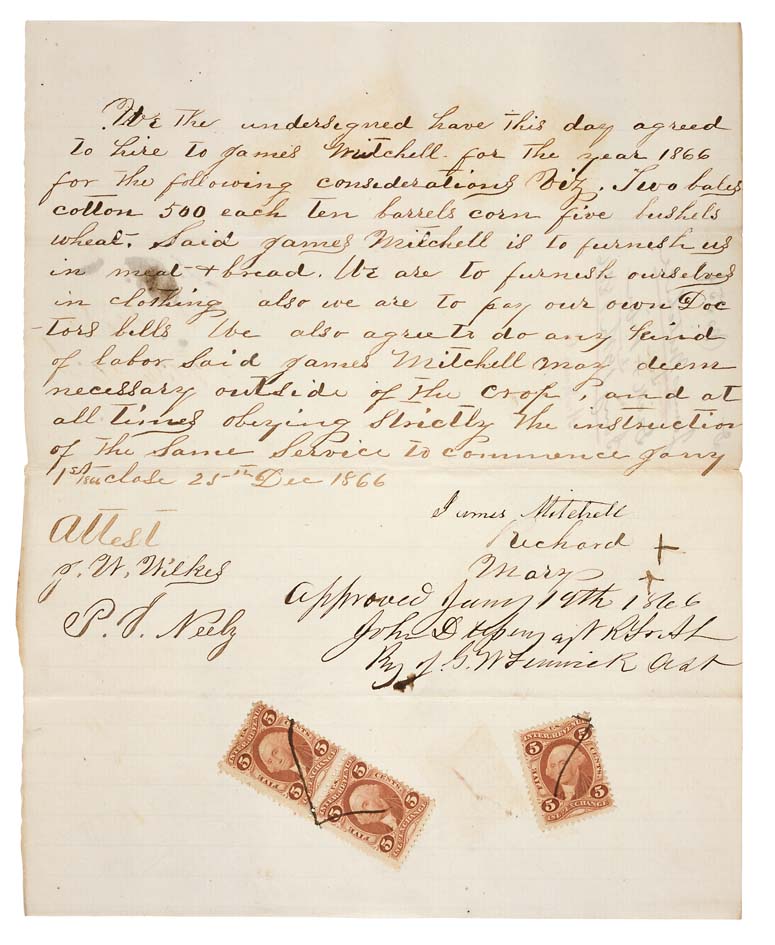 We the undersigned have this day agreed
to hire to James Mitchell for the year 1866
for the following considerations Viz. Two bales
cotton 500 each ten barrels corn five bushels
wheat. Said James Mitchell is to furnish us
in meat + bread. We are to furnish ourselves
in clothing also we are to pay our own Doc
-tors bills We also agree to do any kind
of labor said James Mitchell may deem
necessary outside of the crop, and at
all times obeying strictly the instruction
of the same Service to commence Jany
1st 1866 close 25th Dec 1866
James Mitchell
Attest
Richard +
J. W. Wilkes
Mary +
Approved Jany 19th 1866
P. J. Neely
John D
By G. W Fenwick
U.S. INTER. REVENUE
5 5
FIVE CENTS
5 5
INL. EXCHANGE
U.S. INTER. REVENUE
5 5
FIVE CENTS
5 5
INL. EXCHANGE
U.S. INTER. REVENUE
5 5
FIVE CENTS
5 5
INL. EXCHANGE